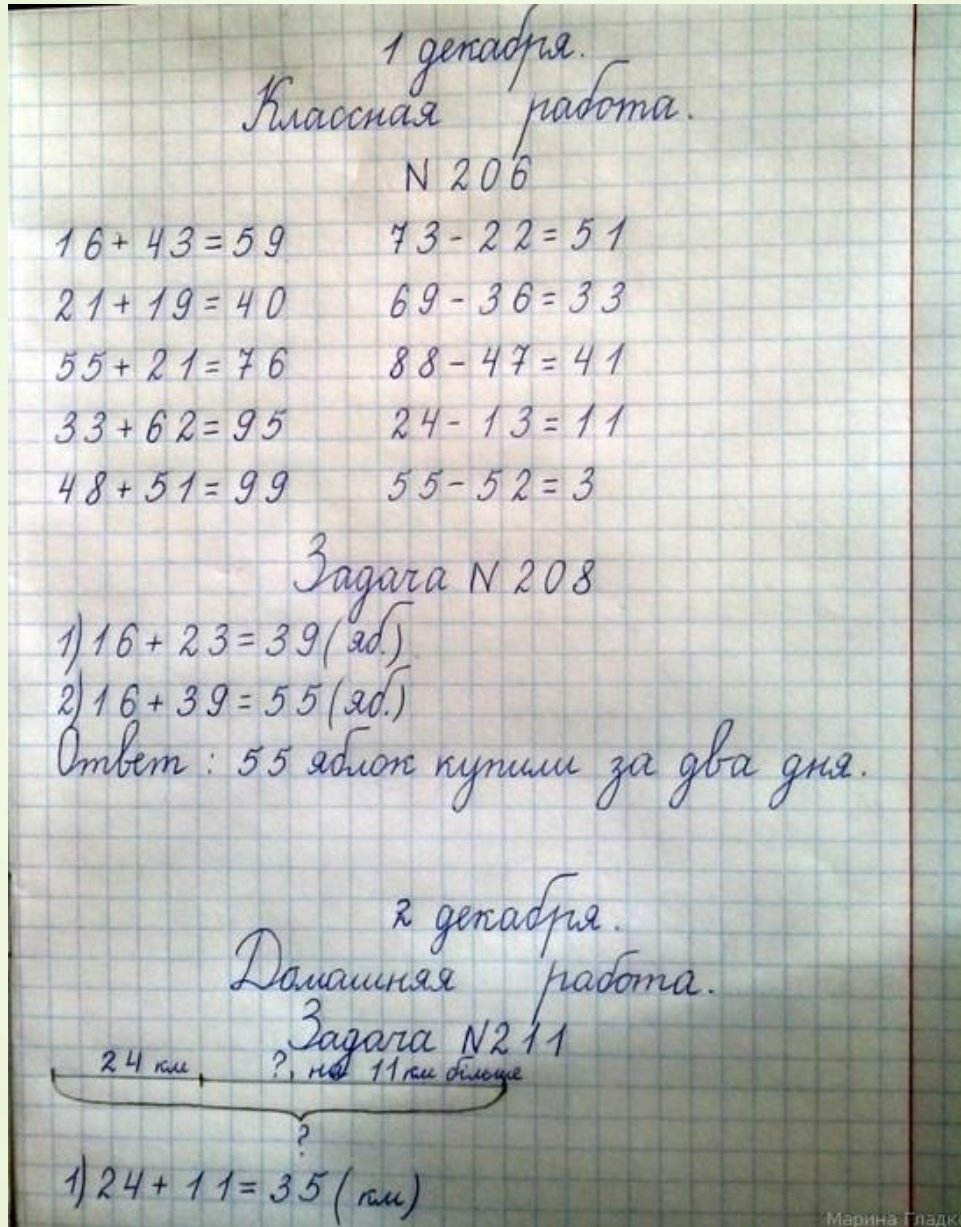 1 декабря.
Классная работа.
N 206
16 + 43 = 59 73 - 22 = 51
21 + 19 = 40 69 - 36 = 33
55 + 21 = 76 88 - 47 = 41
33 + 62 = 95 24 - 13 = 11
48 + 51 = 99 55 - 52 = 3
Задача N 208
1) 16 + 23 = 39 (яб.)
2) 16 + 39 = 55 (яб.)
Ответ : 55 яблок купили за два дня.
2 декабря.
Домашняя работа.
Задача N211
24 км ?, на 11 км більше
?
1) 24 + 11 = 35 (км)
Марина Гладк